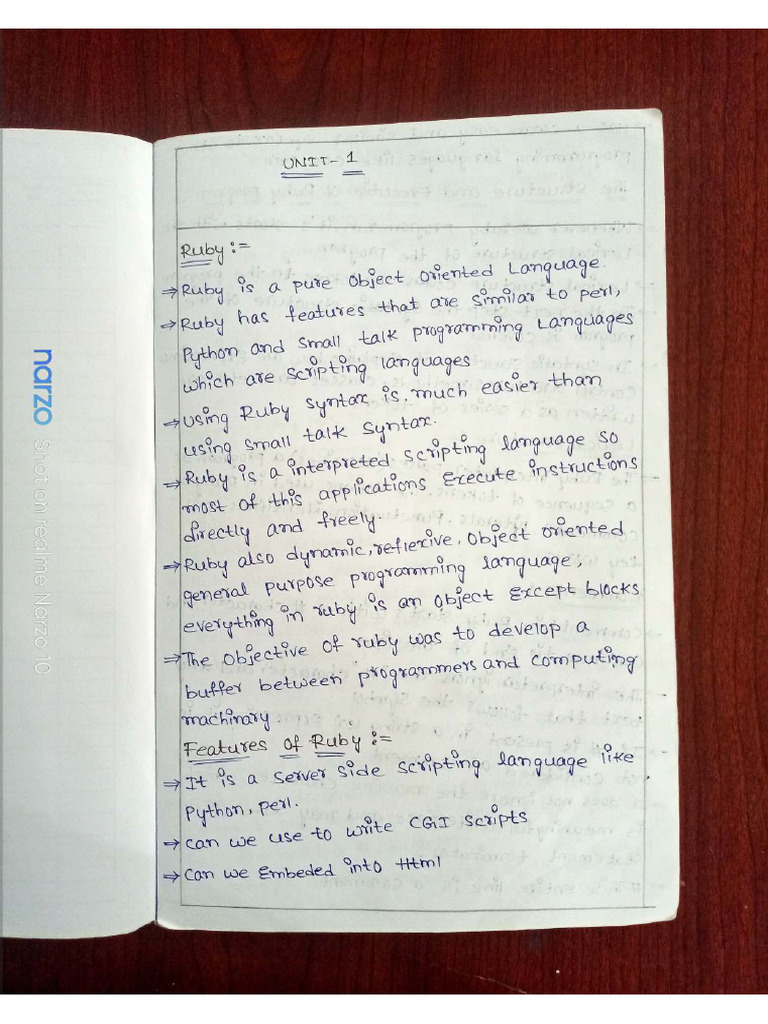 UNIT-1
Ruby :=
⇒ Ruby is a pure object oriented Language.
⇒ Ruby has features that are similar to perl,
Python and small talk programming Languages
which are scripting languages
⇒ using Ruby syntax is much easier than
using small talk syntax.
⇒ Ruby is a interpreted scripting language so
most of this applications execute instructions
directly and freely.
⇒ Ruby also dynamic, reflexive, object oriented
general purpose programming language,
everything in ruby is an object except blocks
⇒ The objective of ruby was to develop a
buffer between programmers and computing
machinary
Features of Ruby :=
⇒ It is a server side scripting language like
Python, perl.
⇒ can we use to write CGI scripts
⇒ can we Embeded into Html
narzo Shot on realme Narzo 10